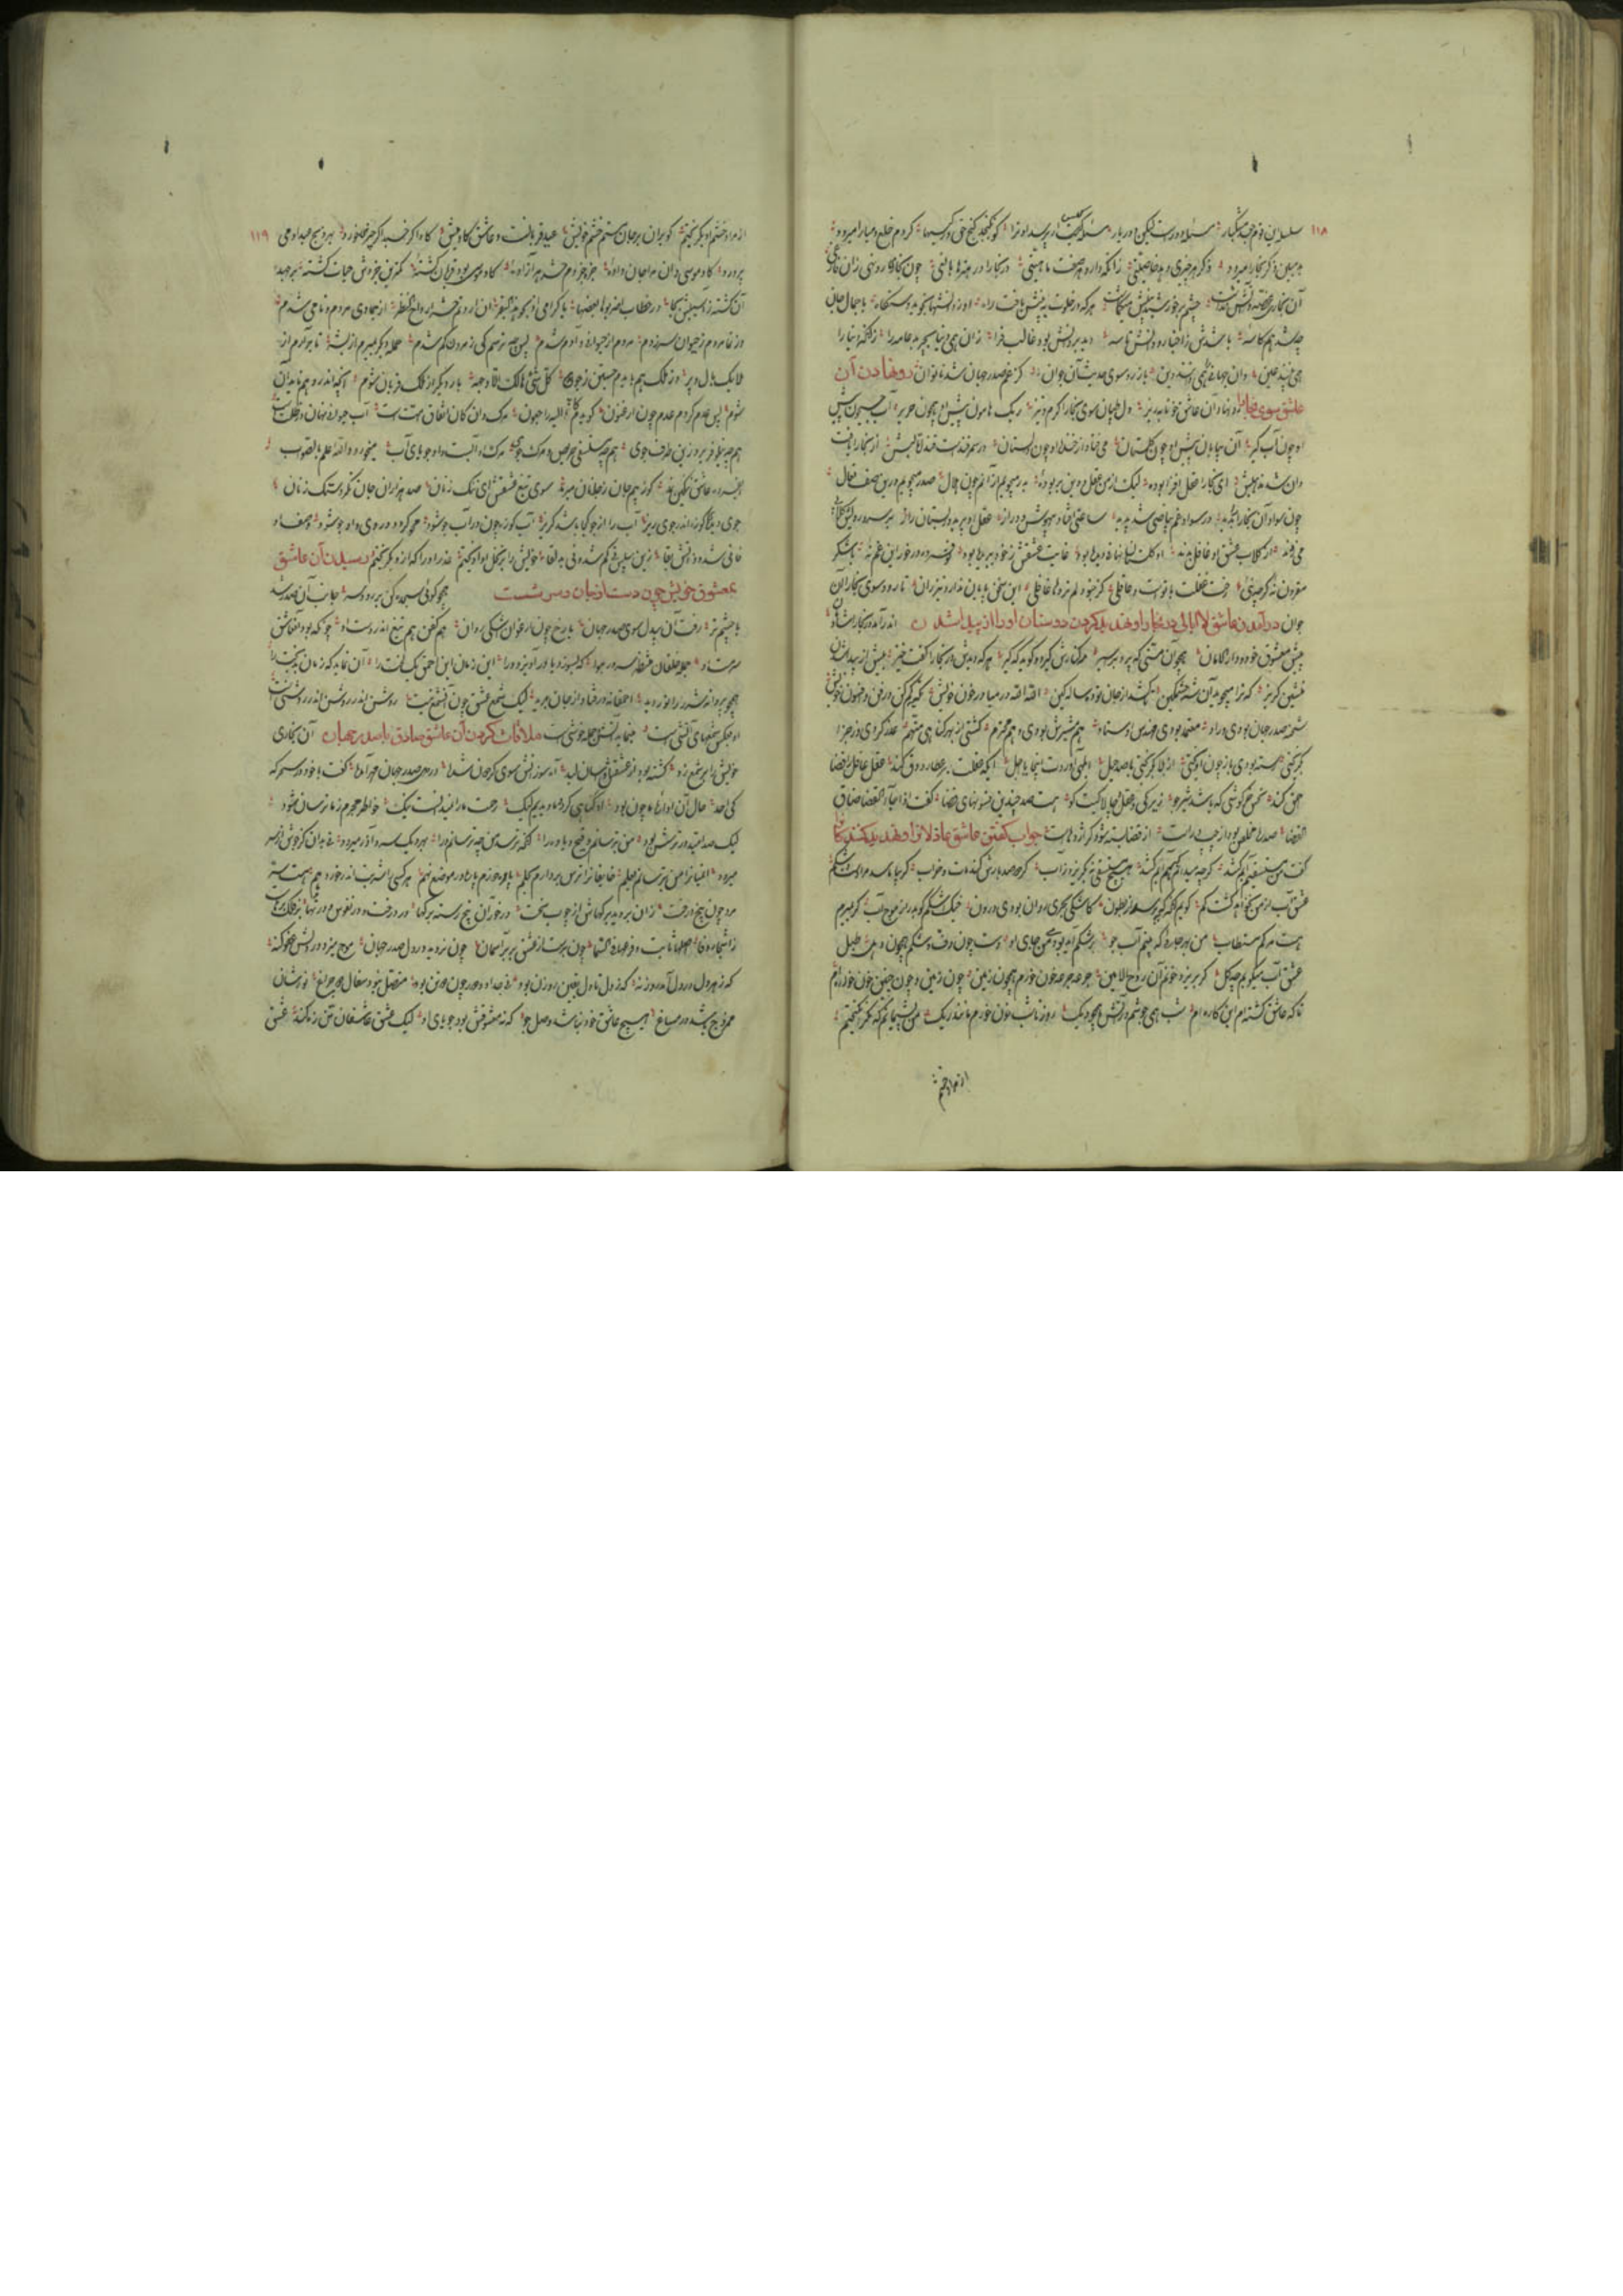 ۱۱۸
سلسله این قوم جعد مشکبار مسئله دورست لیکن دور یار مسئله کیس ار بپرسد او ترا کو نگنجد گنج حق در کیسها گر دم خلع و مبارا میرود
بد مبین ذکر بخارا میرود ذکر هر چیزی دهد خاصیتی زانکه دارد هر صفت ماهیتی در بخارا در هنرها بالغی چون بخواری رو نهی زان فارغی
آن بخاری غصه دانش نداشت چشم بر خورشید بینش میگماشت هر که در خلوت به بینش یافت راه او ز دانشها نجوید دستگاه با جمال جان
چو شد هم کاسه باشدش ز اخبار و دانش تاسه دید بر دانش بود غالب فرا زان همی دنیا بچربد عامه را زانکه دنیا را
همی بینند عین وان جهانی را همی دانند دین باز رو سوی حدیث آن جوان کز غم صدر جهان شد ناتوان رو نهادن آن
عاشق سوی بخارا رو نهاد آن عاشق خونابه ریز دل طپان سوی بخارا گرم و تیز ریگ هامون پیش او همچون حریر آب جیحون پیش
او چون آبگیر آن بیابان پیش او چون گلستان می فتاد از خنده او چون گلستان در سمرقندست قند اما لبش از بخارا یافت
وان شد مذهبش ای بخارا عقل افزا بوده لیک از من عقل و دین بربوده بدر میجویم از آنم چون هلال صدر میجویم درین صف نعال
چون سواد آن بخارا را بدید در سواد غم بیاضی شد پدید ساعتی افتاد بیهوش و دراز عقل او پرید در بستان راز بر سر و رویش گلابی
می زدند از گلاب عشق او غافل بدند او گلستانی نهانی دیده بود غارت عشقش ز خود ببریده بود تو فسرده درخور این دم نه با شکر
مقرون نه گرچه نی رخت عقلت با توست و عاقلی کز جنودا لم تروها غافلی این سخن پایان ندارد تیز ران تا رود سوی بخارا آن
جوان در آمدن عاشق لاابالی در بخارا و تهدید کردن دوستان او را از پیدا شدن اندر آمد در بخارا شادمان
پیش معشوق خود و دار الامان همچو آن مستی که پرد بر سپهر مه کنارش گیرد و گوید که گیر هر که دیدش در بخارا گفت خیز پیش از پیدا شدن
منشین گریز که ترا میجوید آن شه خشمگین تا کشد از جان تو ده ساله کین الله الله در میا در خون خویش تکیه کم کن بر دم و افسون خویش
شحنه صدر جهان بودی و راد معتمد بودی مهندس اوستاد هم مشیرش بودی و هم محترم گشتی از بهر گناهی متهم غدر کردی وز جزا
بگریختی رسته بودی باز چون آویختی از بلا بگریختی با صد حیل ابلهی آوردت اینجا یا اجل ای که عقلت بر عطارد دق کند عقل عاقل را قضا
احمق کند نحس خرگوشی که باشد شیرجو زیرکی و عقل و چالاکیت کو هست صد چندین فسونهای قضا گفت اذا جاء القضا ضاق
الفضا صد ره و مخلص بود از چپ و راست از قضا بسته شود کو اژدهاست جواب گفتن عاشق عاذلان را و تهدید کنندگان را
گفت من مستسقیم آبم کشد گرچه میدانم که هم آبم کشد هیچ مستسقی بنگریزد ز آب گر دو صد بارش کند مات و خراب گر بیاماسد مرا دست و شکم
عشق آب از من نخواهد گشت کم گویم آنگه که بپرسند از بطون کاشکی بحرم روان بودی درون خیک اشکم گو بدر از موج آب گر بمیرم
هست مرگم مستطاب من بهر جایی که بینم آب جو رشکم آید بودمی من جای او دست چون دف و شکم همچون دهل طبل
عشق آب میکوبم چو گل گر بریزد خونم آن روح الامین جرعه جرعه خون خورم همچون زمین چون زمین و چون جنین خون خواره ام
تا که عاشق گشته ام این کاره ام شب همی جوشم در آتش همچو دیگ روز تا شب خون خورم مانند ریگ من پشیمانم که مکر انگیختم
از مراد خشم
۱۱۹
از مراد خشم او بگریختم گو بران بر جان مستم خشم خویش عید قربان اوست و عاشق گاومیش گاو اگر خسبد اگر چیزی خورد بهر عید و ذبح او می
پرورد گاو موسی دان مرا جان داده جزو جزوم حشر هر آزاده گاو موسی بود قربان گشته کمترین جزوش حیات کشته بر جهید
آن کشته ز آسیبش ز جا در خطاب اضربوه بعضها یا کرامی اذبحوا هذا البقر ان اردتم حشر ارواح النظر از جمادی مردم و نامی شدم
وز نما مردم ز حیوان سر زدم مردم از حیوانی و آدم شدم پس چه ترسم کی ز مردن کم شدم حمله دیگر بمیرم از بشر تا برآرم از
ملایک بال و پر وز ملک هم بایدم جستن ز جو کل شیء هالک الا وجهه بار دیگر از ملک قربان شوم آنچه اندر وهم ناید آن
شوم پس عدم گردم عدم چون ارغنون گویدم کانا الیه راجعون مرگ دان کان اتفاق امتست کاب حیوان نهان در ظلمتست
همچو نیلوفر برو زین طرف جوی همچو مستسقی حریص و مرگ جوی مرگ او آبست و او جویای آب میخورد والله اعلم بالصواب
ای فسرده عاشق ننگین نمد کو ز بیم جان ز جانان میرمد سوی تیغ عشقش ای ننگ زنان صد هزاران جان نگر دستک زنان
جوی دیدی کوزه اندر جوی ریز آب را از جوی کی باشد گریز آب کوزه چون در آب جو شود محو گردد در وی و او جو شود وصف او
فانی شد و ذاتش بقا زین سپس نه کم شود نی بدلقا خویش را بر نخل او آویختم عذر او را که ازو بگریختم رسیدن آن عاشق
بمعشوق خویش چون دست از جان بشست همچو گویی سجده کن بر رو و سر جانب آن صدر شد
با چشم تر رفت آن بیدل سوی صدر جهان با رخ چون ارغوان اشکی روان هم کفن هم تیغ اندر دست او چونکه بود عاشق
سرمست او جمله خلقان منتظر سر در هوا کش بسوزد یا برآویزد ورا این زمان این احمق یک لخت را آن نماید که زمان بدبخت را
همچو پروانه شرر را نور دید احمقانه در فتاد از جان برید لیک شمع عشق چون آن شمع نیست روشن اندر روشن اندر روشنیست
او بعکس شمعهای آتشیست مینماید آتش و جمله خوشیست ملاقات کردن آن عاشق صادق با صدر جهان آن بخاری
خویش را بر شمع زد گشته بود از عشقش آسان آن کبد آه سوزانش سوی گردون شده در دل صدر جهان مهر آمده گفت با خود در سحر که
کی احد حال آن آواره ما چون بود او گناهی کرد و ما دیدیم لیک رحمت ما را نمیدانست نیک خاطر مجرم ز ما ترسان شود
لیک صد امید در ترسش بود من بترسانم وقیح یاوه را آنکه ترسد من چه ترسانم ورا بهر دیگ سرد آذر میرود نه بدان کز جوش از سر
میرود ایمنان را من بترسانم بعلم خایفان را ترس بردارم بحلم پاره دوزم پاره در موضع نهم هر کسی را شربت اندر خور دهم هست سر
مرد چون بیخ درخت زان بروید برگهاش از چوب سخت درخور آن بیخ رسته برگها در درخت و در نفوس و در نهی بر فلک پرهاست
ز اشجار وفا اصلها ثابت و فرعها فی السما چون برست از عشق پر بر آسمان چون نروید در دل صدر جهان موج میزد در دلش عفو گنه
که ز هر دل تا دل آمد روزنه که ز دل تا دل یقین روزن بود نه جدا و دور چون دو تن بود متصل نبود سفال دو چراغ نورشان
ممزوج باشد در مساغ هیچ عاشق خود نباشد وصل جو که نه معشوقش بود جویای او لیک عشق عاشقان تن زه کند عشق